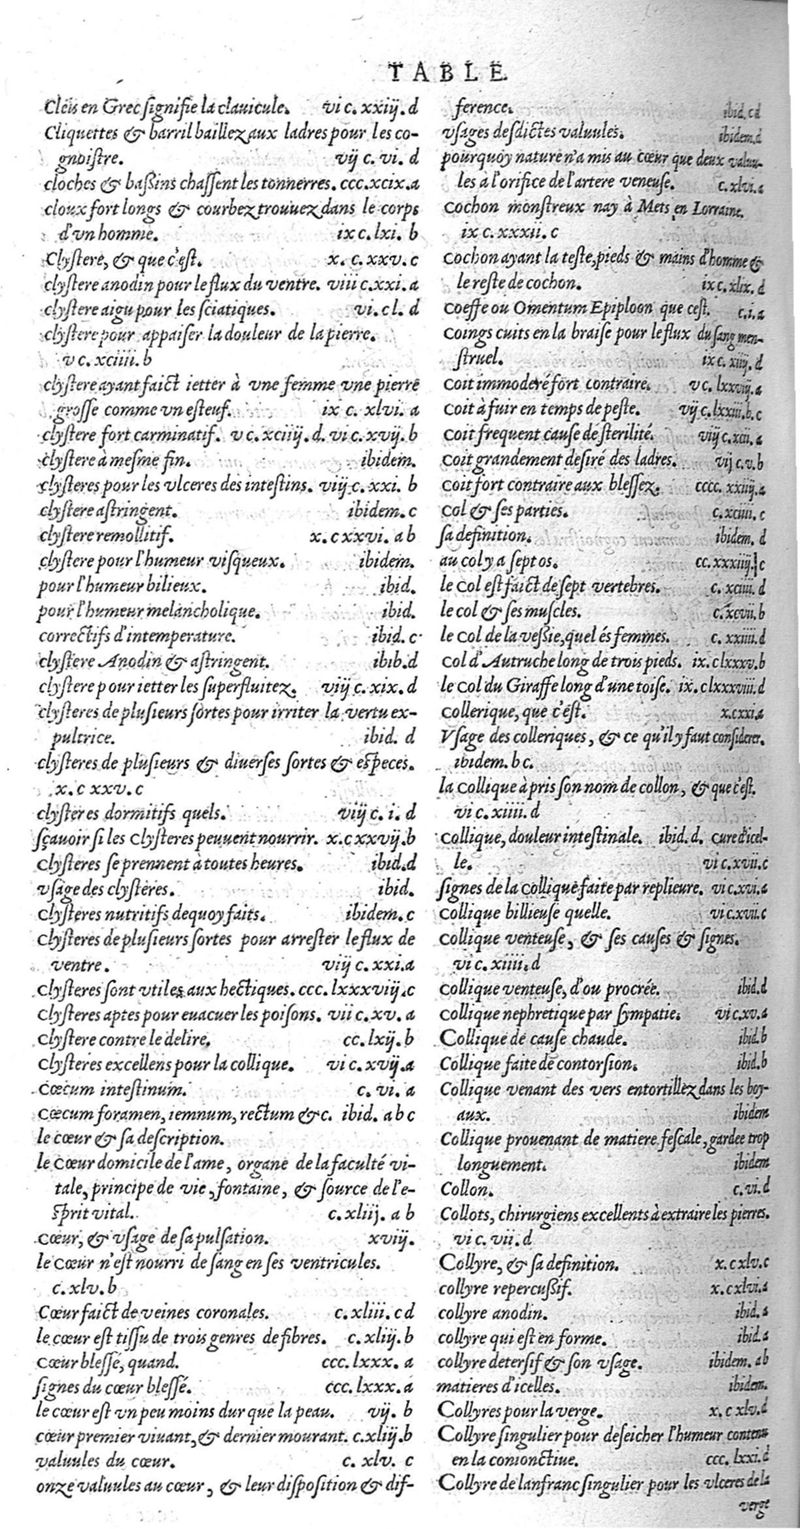 TABLE
Cleis en Grec signifie la clauicule. vi c. xxiij. d
Cliquettes & barril baillez aux ladres pour les co-
gnoistre. vij c. vi. d
cloches & bassins chassent les tonnerres. ccc.xcix.a
cloux fort longs & courbez trouuez dans le corps
d'vn homme. ix c. lxi. b
Clystere, & que c'est. x. c. xxv. c
clystere anodin pour le flux du ventre. viii c.xxi. a
clystere aigu pour les sciatiques. vi. cl. d
clystere pour appaiser la douleur de la pierre.
v c. xciiii. b
clystere ayant faict ietter à vne femme vne pierre
grosse comme vn esteuf. ix c. xlvi. a
clystere fort carminatif. v c. xciiij. d. vi c. xvij. b
clystere à mesme fin. ibidem.
clysteres pour les vlceres des intestins. viij c. xxi. b
clystere astringent. ibidem. c
clystere remollitif. x. c xxvi. a b
clystere pour l'humeur visqueux. ibidem.
pour l'humeur bilieux. ibid.
pour l'humeur melancholique. ibid.
correctifs d'intemperature. ibid. c
clystere Anodin & astringent. ibib.d
clystere pour ietter les superfluitez. viij c. xix. d
clysteres de plusieurs sortes pour irriter la vertu ex-
pultrice. ibid. d
clysteres de plusieurs & diuerses sortes & especes.
x. c xxv. c
clysteres dormitifs quels. viij c. i. d
sçauoir si les clysteres peuuent nourrir. x. c xxvij. b
clysteres se prennent à toutes heures. ibid.d
vsage des clysteres. ibid.
clysteres nutritifs dequoy faits. ibidem. c
clysteres de plusieurs sortes pour arrester le flux de
ventre. viij c. xxi.a
clysteres sont vtiles aux hectiques. ccc. lxxxviij. c
clysteres aptes pour euacuer les poisons. vii c. xv. a
clystere contre le delire, cc. lxij. b
clysteres excellens pour la collique. vi c. xvij. a
cœcum intestinum. c. vi. a
cœcum foramen, iemnum, rectum &c. ibid. a b c
le cœur & sa description.
le cœur domicile de l'ame, organe de la faculté vi-
tale, principe de vie, fontaine, & source de l'e-
sprit vital. c. xliij. a b
cœur, & vsage de sa pulsation. xviij.
le cœur n'est nourri de sang en ses ventricules.
c. xlv. b
Cœur faict de veines coronales. c. xliii. c d
le cœur est tissu de trois genres de fibres. c. xliij. b
cœur blessé, quand. ccc. lxxx. a
signes du cœur blessé. ccc. lxxx. a
le cœur est vn peu moins dur que la peau. vij. b
cœur premier viuant, & dernier mourant. c. xliij. b
valuules du cœur. c. xlv. c
onze valuules au cœur, & leur disposition & dif-
ference. ibid. c d
vsages desdictes valuules. ibidem.d
pourquoy nature n'a mis au cœur que deux valuu-
les à l'orifice de l'artere veneuse. c. xlvi. a
cochon monstreux nay à Mets en Lorraine.
ix c. xxxii. c
cochon ayant la teste, pieds & mains d'homme &
le reste de cochon. ix c. xlix. d
coeffe ou Omentum Epiploon que cest. c. i. a
coings cuits en la braise pour le flux du sang men-
struel. ix c. xiij. d
coit immoderé fort contraire. v c. lxxvij. a
coit à fuir en temps de peste. vij c. lxxiii. b. c
coit frequent cause de sterilité. viij c. xcii. a
coit grandement desiré des ladres. vij c. v. b
coit fort contraire aux blessez. cccc. xxiij. a
col & ses parties. c. xciiii. c
sa definition. ibidem. d
au col y a sept os. cc. xxxiij. c
le col est faict de sept vertebres. c. xciiii. d
le col & ses muscles. c. xcvii. b
le col de la vessie, quel és femmes. c. xxiiii. d
col d'Autruche long de trois pieds. ix. c lxxxv. b
le col du Giraffe long d'une toise. ix. c lxxxviii. d
collerique, que c'est. x.cxxi.a
Vsage des colleriques, & ce qu'il y faut considerer.
ibidem. b c.
la collique à pris son nom de collon, & que c'est.
vi c. xiiii. d
collique, douleur intestinale. ibid. d. cure d'icel-
le. vi c. xvii. c
signes de la collique faite par replieure. vi c. xvi. a
collique bilieuse quelle. vi c. xvii. c
collique venteuse, & ses causes & signes.
vi c. xiiii. d
collique venteuse, d'ou procrée. ibid. d
collique nephretique par sympatie. vi c. xv. a
Collique de cause chaude. ibid. b
Collique faite de contorsion. ibid. b
Collique venant des vers entortillez dans les boy-
aux. ibidem
Collique prouenant de matiere fescale, gardee trop
longuement. ibidem
Collon. c. vi. d
Collots, chirurgiens excellents à extraire les pierres.
vi c. vii. d
Collyre, & sa definition. x. c xlv. c
collyre repercussif. x. c xlvi. a
collyre anodin. ibid. a
collyre qui est en forme. ibid. a
collyre detersif & son vsage. ibidem. a b
matieres d'icelles. ibidem.
Collyres pour la verge. x. c xlv. d
Collyre singulier pour deseicher l'humeur contenu
en la conionctiue. ccc. lxxi. d
Collyre de lanfranc singulier pour les vlceres de la
verge